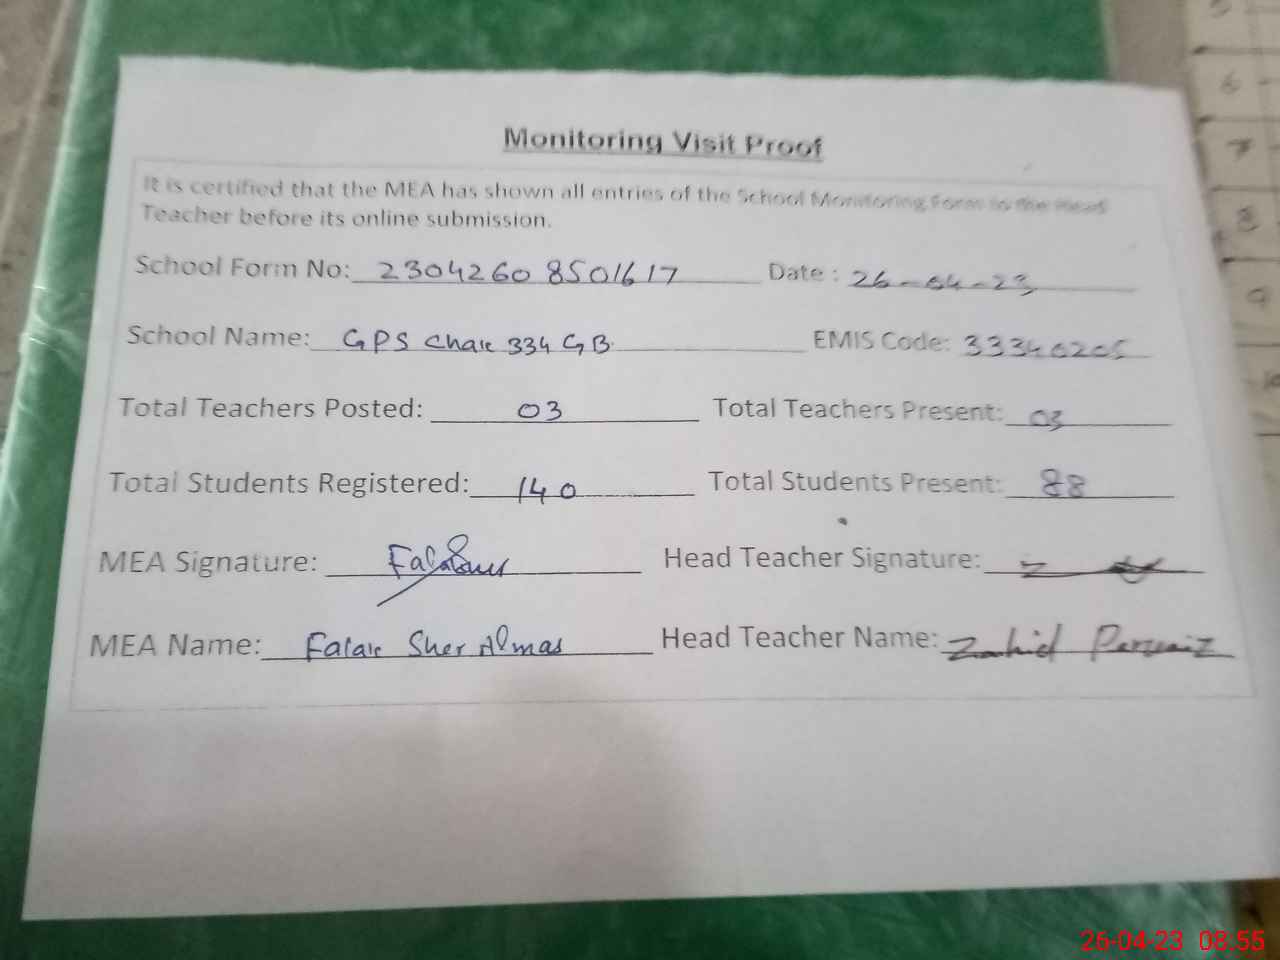 Monitoring Visit Proof
It is certified that the MEA has shown all entries of the School Monitoring Form to the Head
Teacher before its online submission.
School Form No: 23042608501617 Date : 26-04-23
School Name: GPS Chak 334 GB. EMIS Code: 33340205
Total Teachers Posted: 03 Total Teachers Present: 03
Total Students Registered: 140 Total Students Present: 88
MEA Signature: Head Teacher Signature:
MEA Name: Falak Sher Almas Head Teacher Name: Zahid Parvaiz
5
6
7
8
9
10
26-04-23 08:55